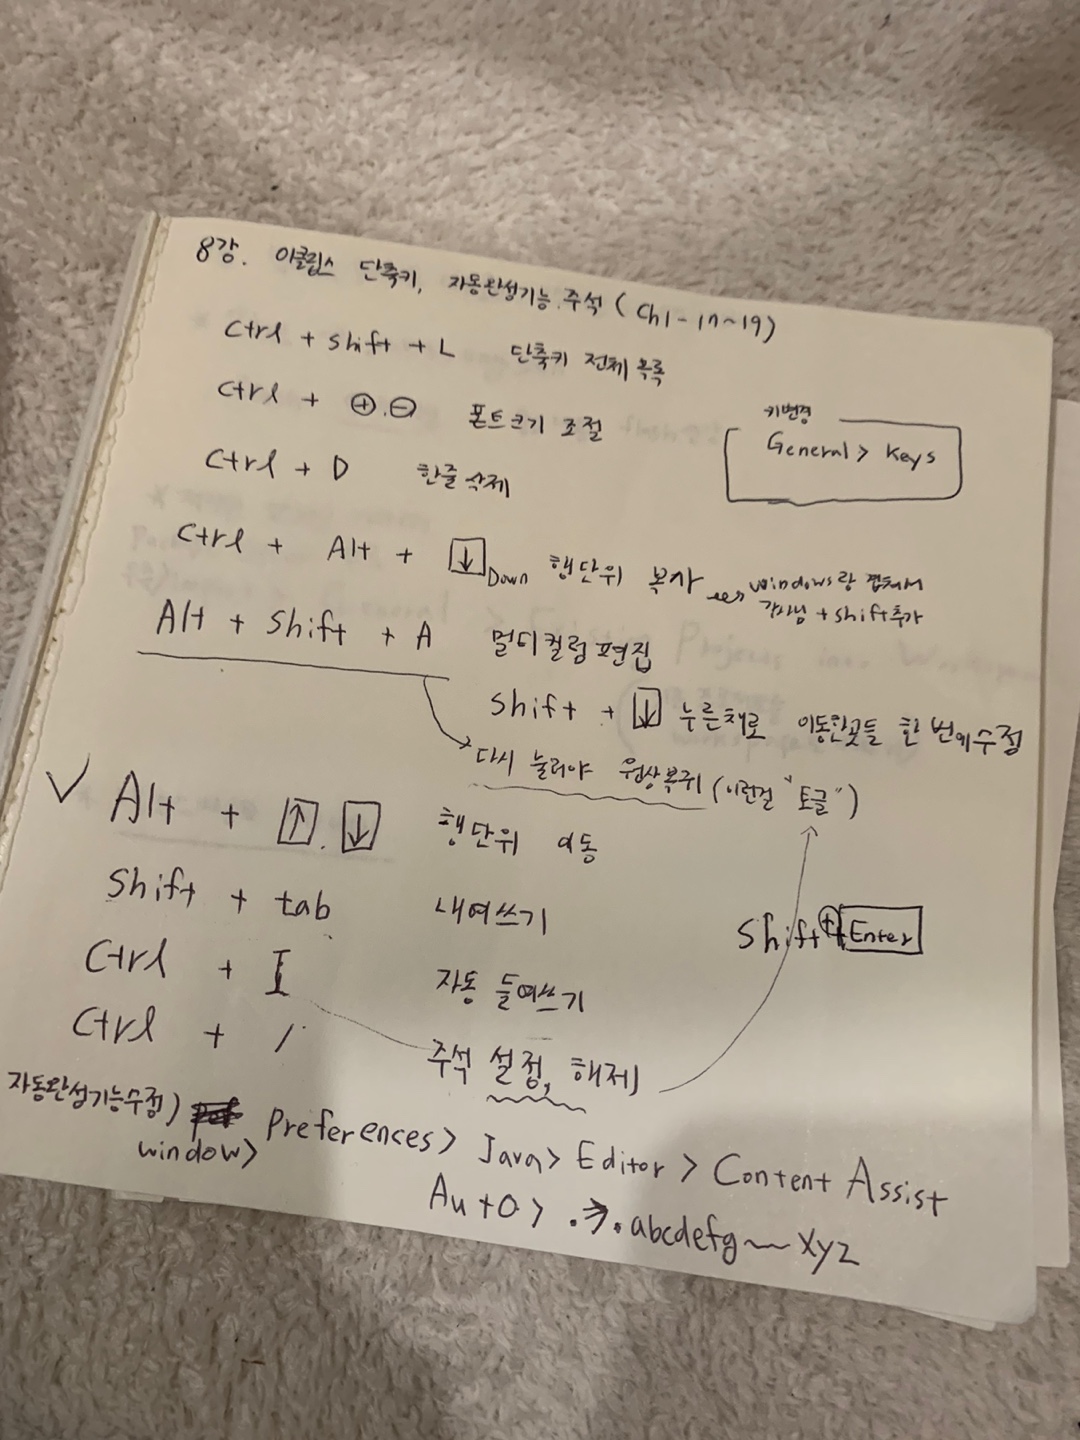 8강. 이클립스 단축키, 자동완성기능. 주석 (Ch1-17~19)
Ctrl + shift + L 단축키 전체 목록
Ctrl + ⊕.⊖ 폰트크기 조절
키변경
General > Keys
Ctrl + D 한줄 삭제
Ctrl + Alt + ↓ Down 행단위 복사
windows랑 겹쳐서
+ shift 추가
Alt + shift + A 멀티컬럼 편집
shift + ↓ 누른채로 이동한곳들 한 번에 수정
다시 눌러야 원상복귀 (이런걸 "토글")
✓ Alt + ↑.↓ 행단위 이동
shift + tab 내여쓰기
shift + Enter
Ctrl + I 자동 들여쓰기
Ctrl + / 주석 설정, 해제
자동완성기능수정)
window> Preferences> Java> Editor > Content Assist
Auto > .→.abcdefg~xyz